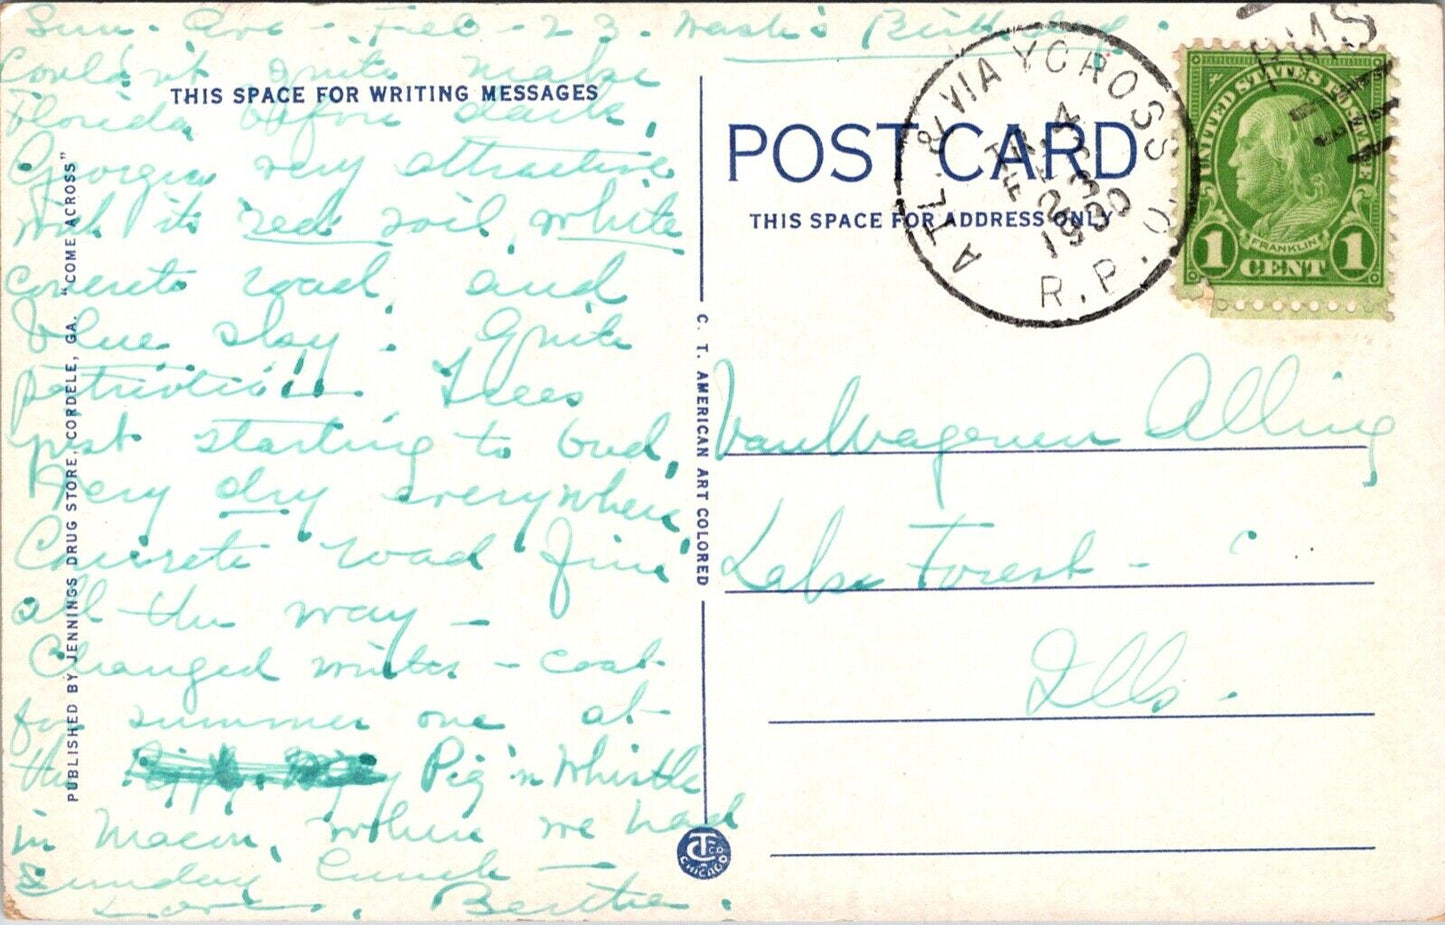 Sun. Eve - Feb - 23. Wash's Birthday.
Couldn't quite make
THIS SPACE FOR WRITING MESSAGES
Florida before dark.
Georgia very attractive
with its red soil, white
concrete road, and
blue sky. Quite
patriotic!! Trees
just starting to bud,
Very dry everywhere
Concrete road fine
all the way -
Changed winter - coat
for summer one at
the Pig 'n Whistle
in Macon, where we had
Sunday Lunch -
Love, Berthe.
PUBLISHED BY JENNINGS DRUG STORE, CORDELE, GA. "COME ACROSS"
C. T. AMERICAN ART COLORED
CT CO
CHICAGO
POST CARD
THIS SPACE FOR ADDRESS ONLY
ATL. & WAYCROSS
FEB 24
1930
R.P.O.
RMS
UNITED STATES POSTAGE
FRANKLIN
1 CENT 1
VanWagenen Alling
Lake Forest -
Ills.